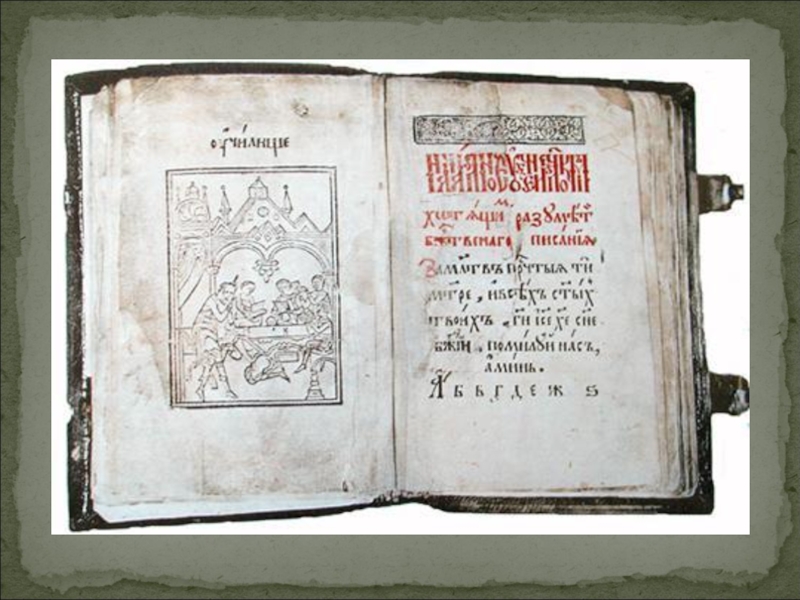 оучи́лище
хотѧ́щиⷨ разꙋмѣ́ти
бж҃твенаго писа́нїѧ
За мл҃твъ прⷱ҇тыѧ ти
мт҃ре , и всѣ́хъ ст҃ы́хъ
твои́хъ , гⷭ҇и і҆с҃е хе҃ сн҃е
бж҃їи , поми́лꙋи насъ ,
а҆ми́нь .
А б в г д е ж ѕ